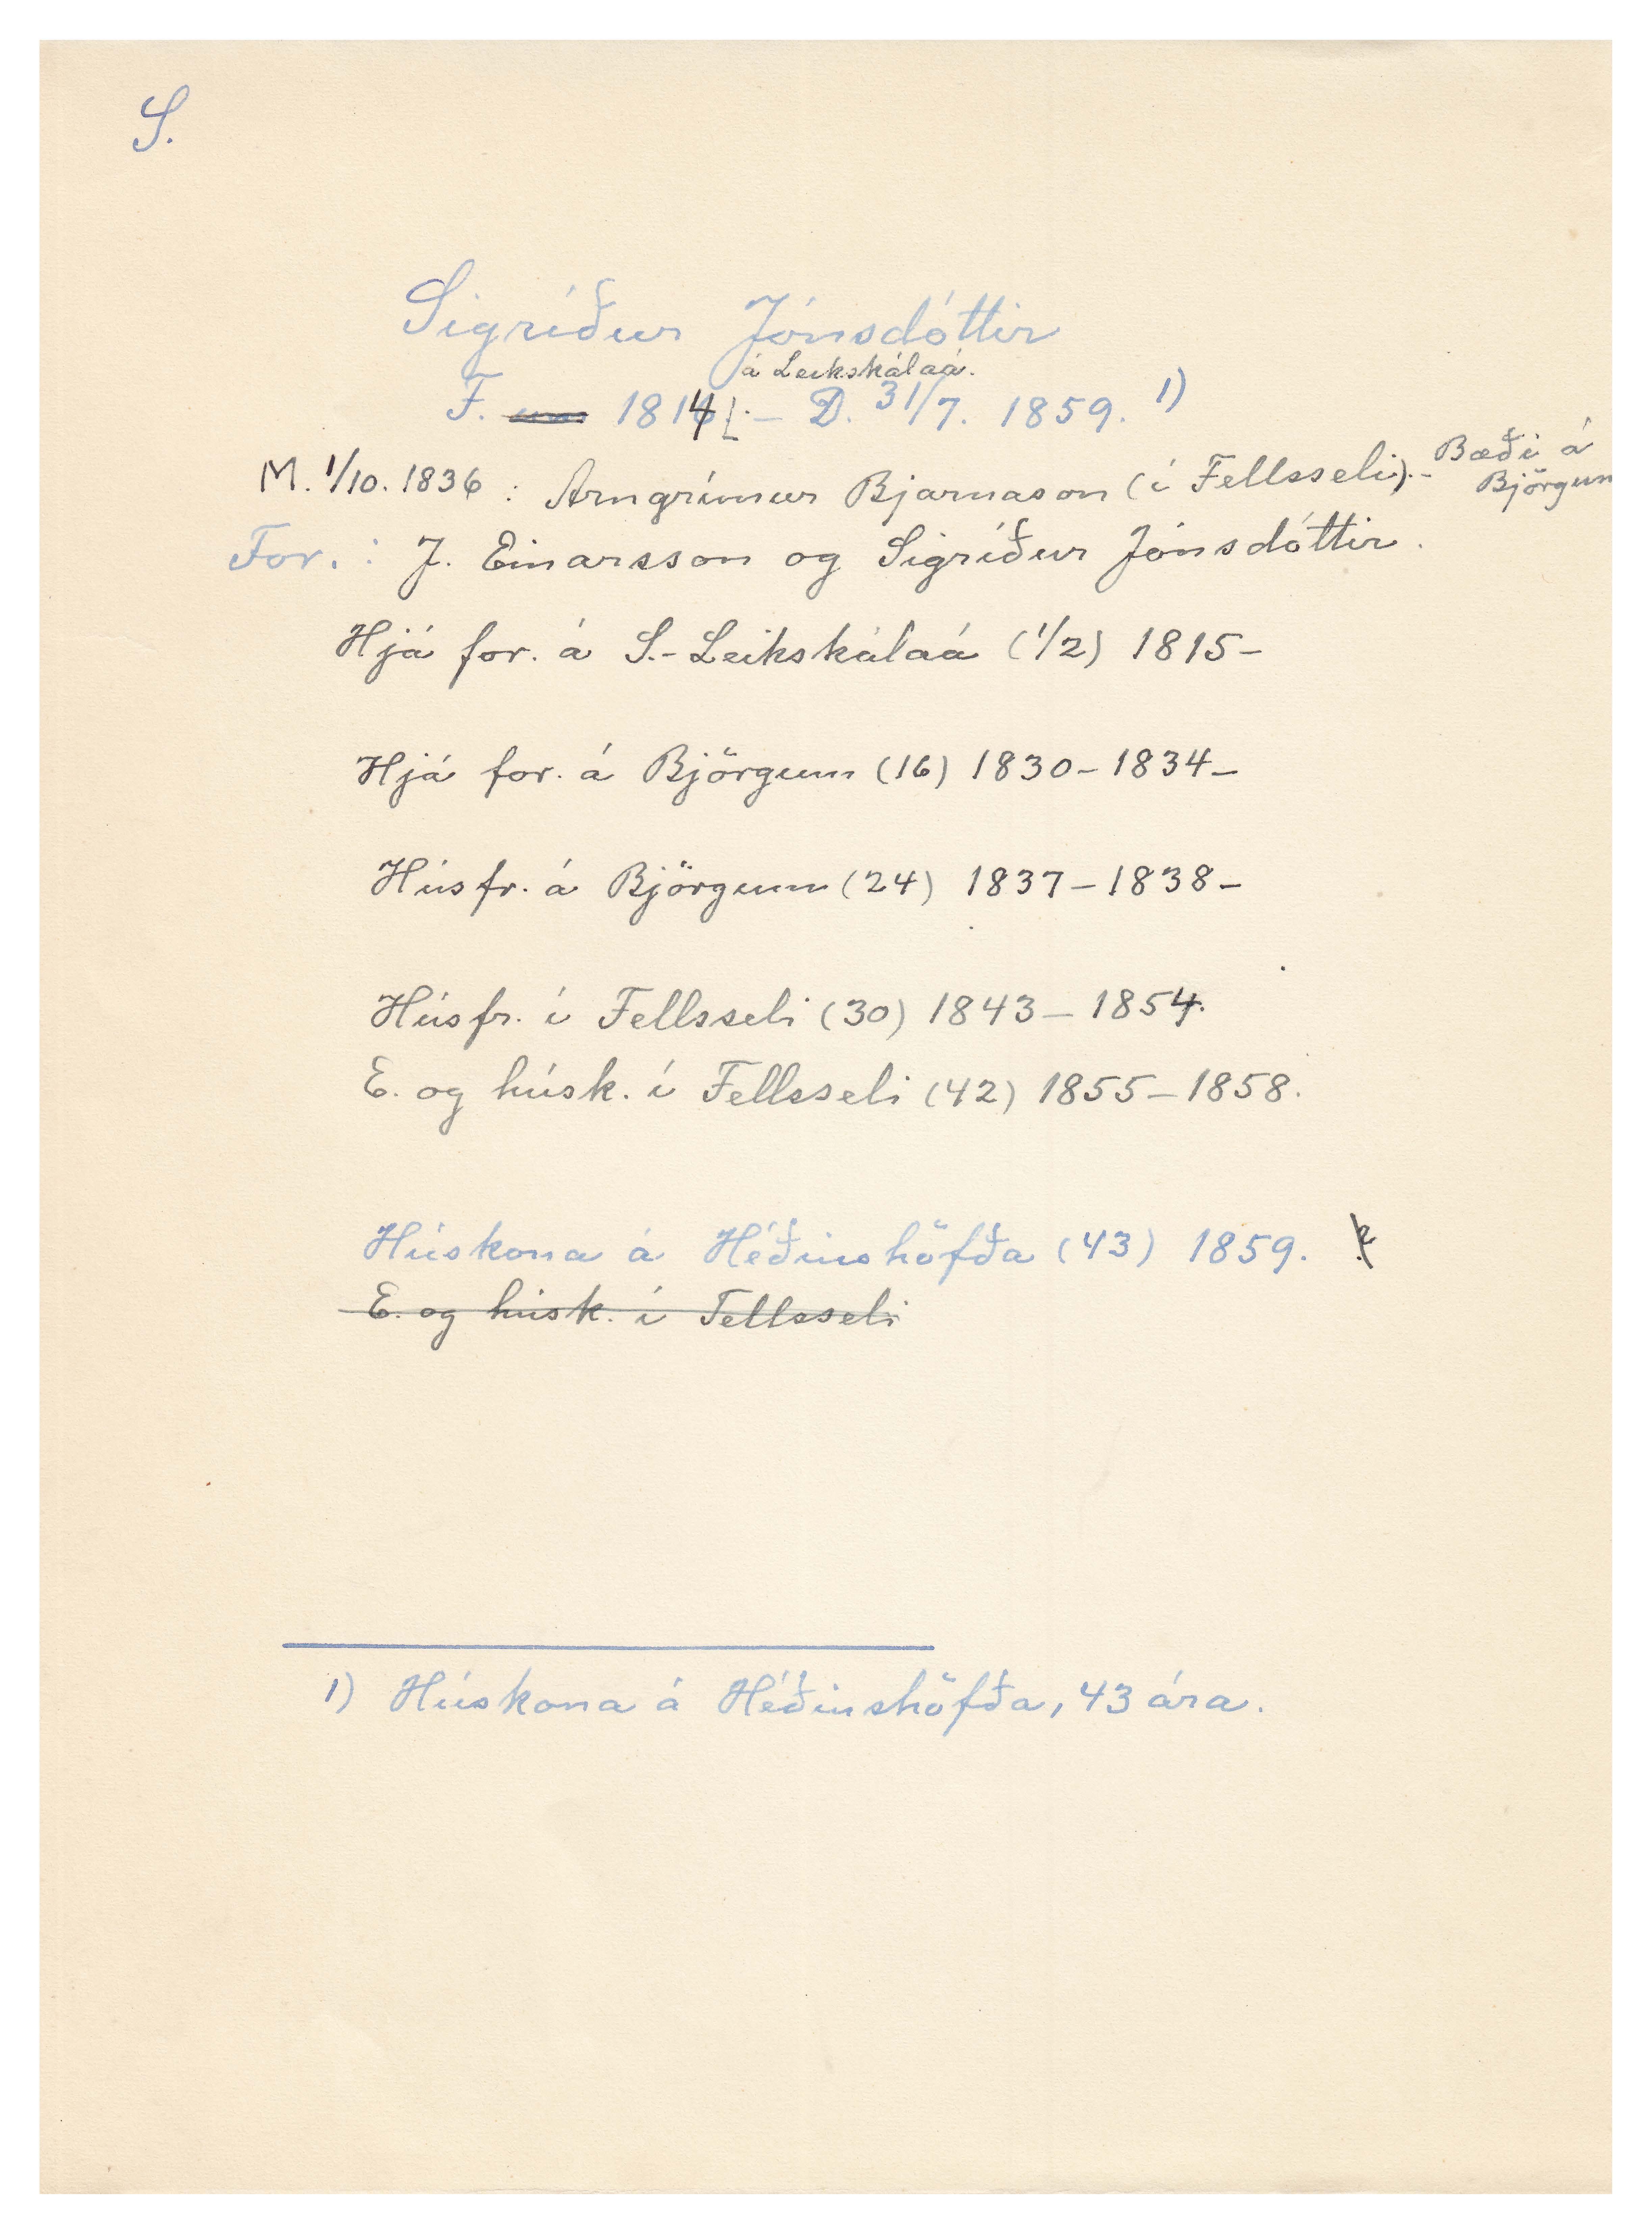 S.
Sigríður Jónsdóttir
á Leikskálaá.
F. 1814 – D. 31/7. 1859. 1)
M. 1/10. 1836 : Arngrímur Bjarnason (í Fellsseli). – Bæði á
Björgum
For. : J. Einarsson og Sigríður Jónsdóttir.
Hjá for. á S.-Leikskálaá (1/2) 1815–
Hjá for. á Björgum (16) 1830–1834–
Húsfr. á Björgum (24) 1837–1838–
Húsfr. í Fellsseli (30) 1843–1854.
E. og húsk. í Fellsseli (42) 1855–1858.
Húskona á Héðinshöfða (43) 1859.
E. og húsk. í Fellsseli
1) Húskona á Héðinshöfða, 43 ára.